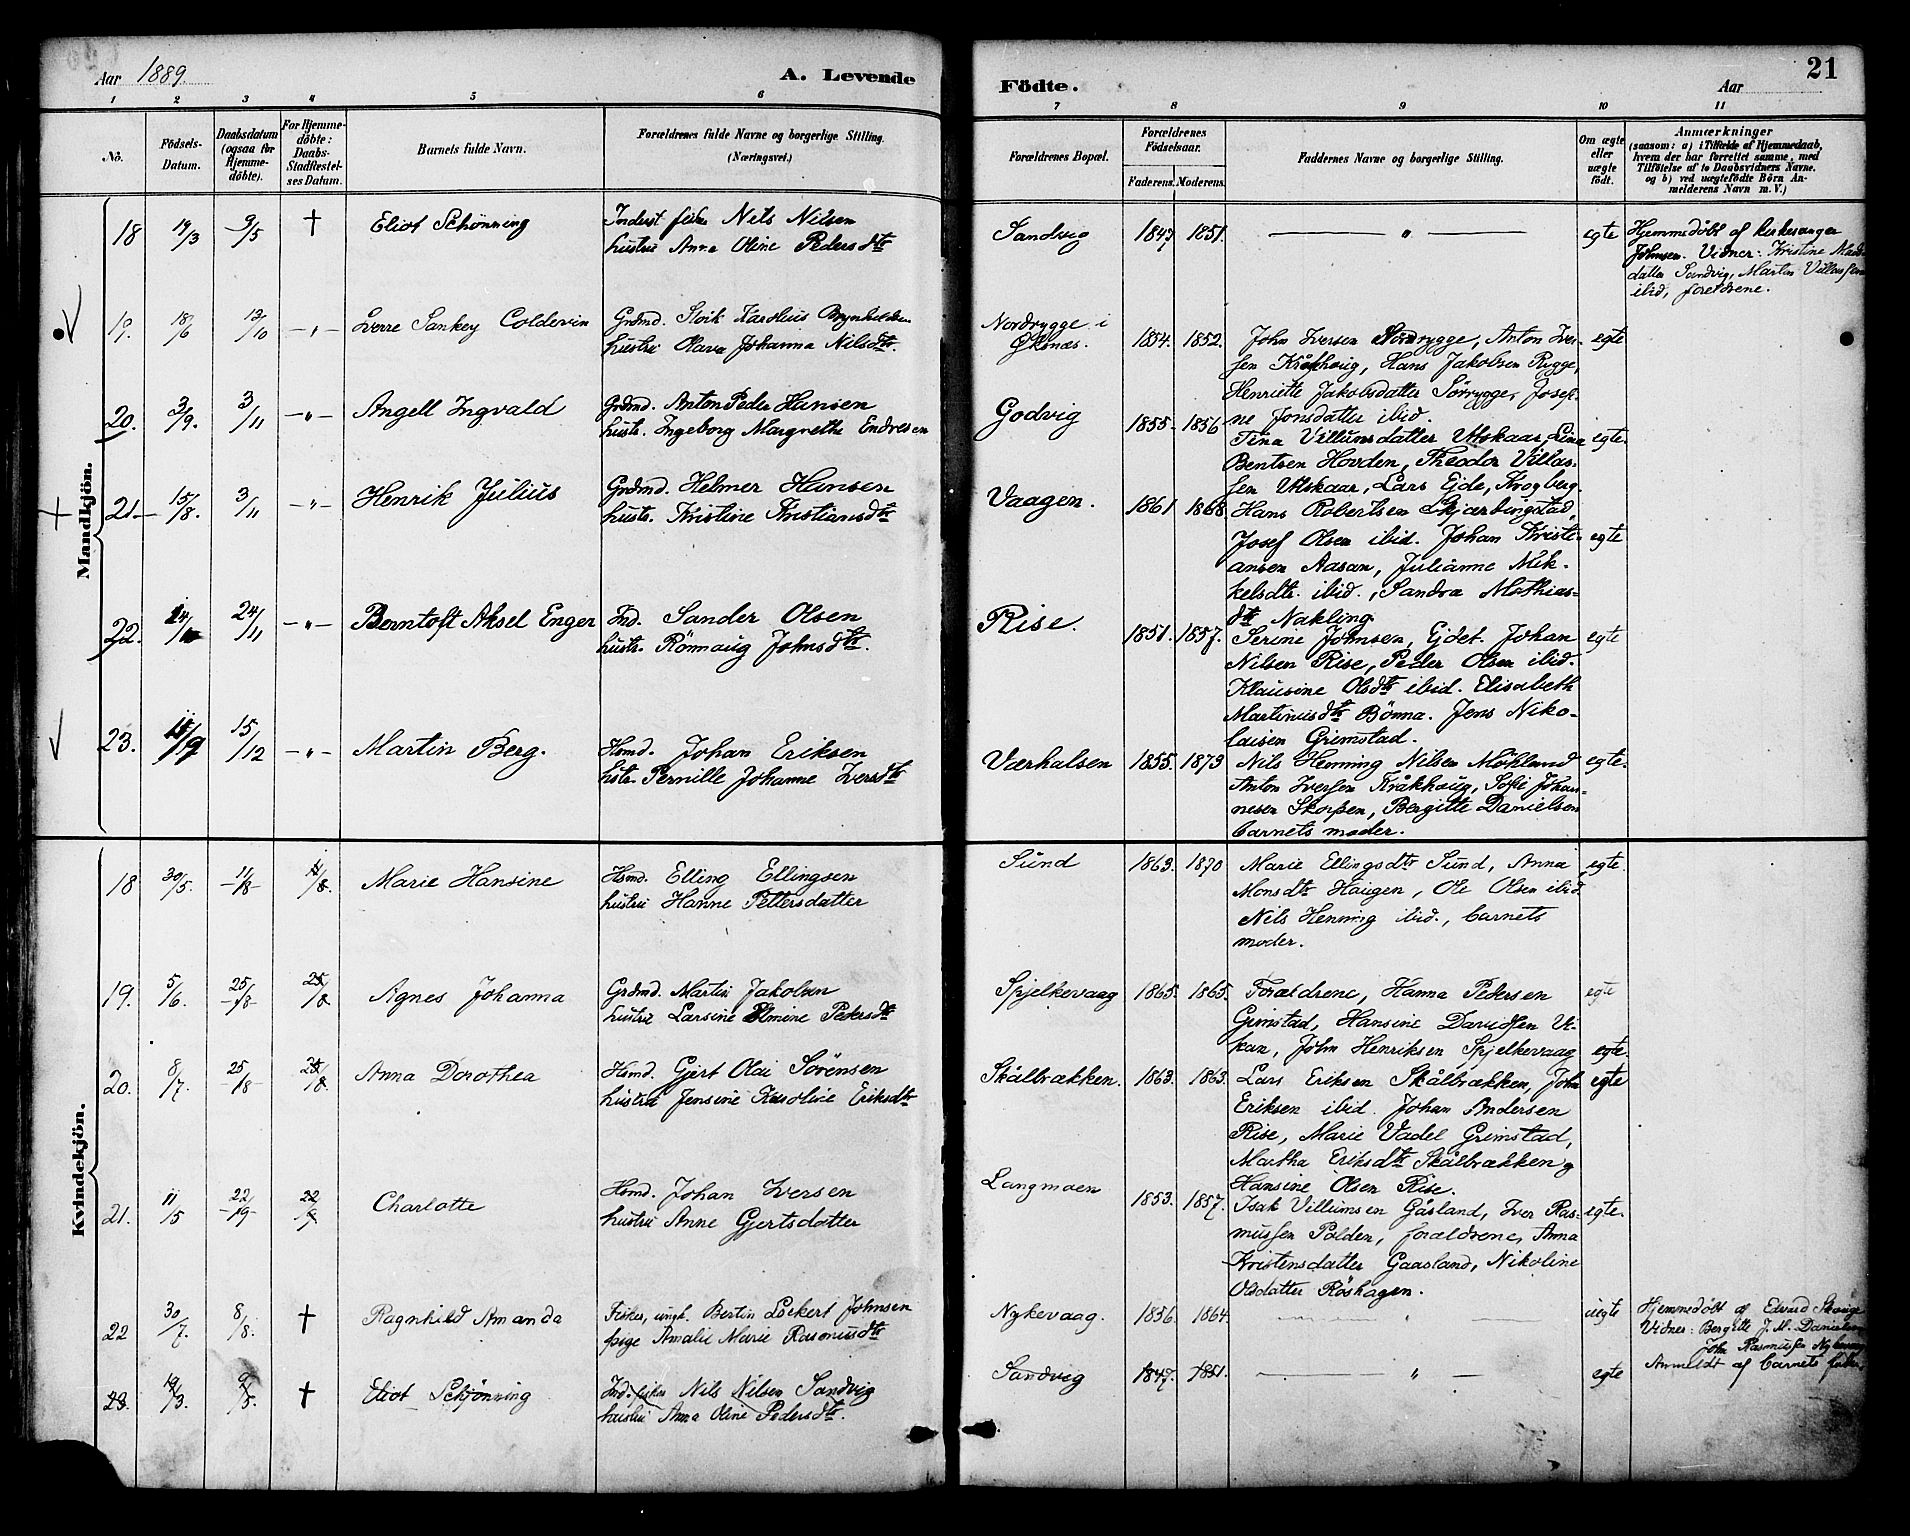 Aar 1889.
A. Levende
Födte.
Aar
21
1 2 3 4 5 6 7 8 9 10 11
No.
Födsels-
Datum.
Daabsdatum
(ogsaa for
Hjemme-
döbte).
For Hjemme-
döbte:
Daabs-
Stadfæstel-
ses Datum.
Barnets fulde Navn.
Forældrenes fulde Navne og borgerlige Stilling.
(Næringsvei.)
Forældrenes Bopæl.
Forældrenes
Födselsaar.
Faderens. Moderens.
Faddernes Navne og borgerlige Stilling.
Om ægte
eller
uægte
født.
Anmærkninger
(saasom: a) i Tilfælde af Hjemmedaab,
hvem der har forrettet samme, med
Tilföielse af to Daabsvidners Navne.
og b) ved uægtefödte Börn An-
melderens Navn m. V.)
Mandkjön.
18 19/3 9/5 † Eliot Schønning
Inderst fisker Nils Nilsen
hustru Anna Oline Pedersdtr
Sandvig 1847 1851. — „ — egte
Hjemmedöbt af kirkesanger
Johnsen. Vidner: Kristine
datter Sandvig, Martin
ibid, foreldrene.
19. 18/6 12/10 — „ — Sverre Sankey Coldevin
Grdmd. Stoik Karolius Brynhildsen
hustru Olava Johanna Nilsdtr.
Nordrygge i
Öksnæs. 1854. 1852.
John Iversen Nordrygge, Anton Iver- egte
sen Kråkhaug, Hans Jakobsen Rygge,
Henriette Jakobsdatter Sörrygge, Josefi-
ne Jonsdatter ibid.
20. 3/9. 3/11 — „ — Angell Ingvald
Grdmd. Anton Peder Hansen
hustr. Ingeborg Margrethe Endresen
Godvig 1855 1856
Tina Villumsdatter Utskaar, Lina egte
Bentsen Hovden, Theodor Villas-
sen Utskaar, Lars Ejde, Krogberg
21. 15/8. 3/11 — „ — Henrik Julius
Grdmd. Helmer Hansen
hustr. Kristine Kristiansdtr
Vaagen. 1861 1868.
Hans Robertsen Skjærbingstad,
Josef Olsen ibid. Johan Kristi- egte
ansen Aasan, Julianne Mik-
kelsdtr. ibid., Sandra Mathias-
dtr Nakling
22. 24/11 — „ — Berntoft Aksel Enger
Ind. Sander Olsen
hustr. Rönnaug Johnsdtr.
Rise. 1851. 1857.
Serine Johnsen, Ejdet. Johan egte
Nilsen Rise, Peder Olsen ibid.
Klausine Olsdtr ibid. Elisabeth
Martinusdtr Bönna. Jens Niko-
laisen Grimstad.
23. 15/12 — „ — Martin Berg.
Hsmd. Johan Eriksen
hstr. Pernille Johanne Iversdtr
Værhalsen 1855. 1873
Nils Henning Nilsen Möklund egte.
Anton Iversen Kråkhaug, Sofie Johan-
nesen Skorpen, Bergitte Danielsen
barnets moder.
Kvindekjön.
18 30/5. 11/8 11/8. Marie Hansine
Hsmd. Elling Ellingsen
hustru Hanne Pettersdatter
Sund 1863. 1870
Marie Ellingsdtr Sund, Anna egte.
Monsdtr Haugen, Ole Olsen ibid
Nils Henning ibid., barnets
moder.
19. 5/6. 25/8 25/8 Agnes Johanna
Grdmd. Martin Jakobsen
hustru Larsine Elmine Pedersdtr
Spjelkevaag 1865. 1865.
Forældrene, Hanna Pedersen egte
Grimstad, Hansine Davidsen Vi-
kan, John Henriksen Spjelkevaag egte.
20. 8/7. 25/8 25/8. Anna Dorothea
Hsmd. Gjert Olai Sörensen
hustru Jensine Karoline Eriksdtr
Skålbrækken. 1863. 1863.
Lars Eriksen Skålbrækken, John egte
Eriksen ibid. Johan Andersen
Rise, Marie Vadel Grimstad,
Martha Eriksdtr Skålbrækken og
Hansine Olsen Rise.
21. 11/5 22/9 22/9 Charlotte
Hsmd. Johan Iversen
hustru Anne Gjertsdatter
Langmoen 1853. 1857.
Isak Villumsen Gåsland, Iver Ras- egte.
mussen Polden, forældrene, Anna
Kristensdatter Gaasland, Nikoline
Olsdatter Röshagen.
22 30/7. 8/8. † Ragnhild Amanda
Fisker, ungk. Bertin Lockert Johnsen
pige Amalie Marie Rasmusdtr
Nykevaag. 1856. 1864. uegte
Hjemmedöbt af Edvard
Vidner: Bergitte J. M. Danielsen
John Rasmussen
Anmeldt af barnets fader.
23. 19/3. 9/5. † Eliot Schjønning
Ind. fisker Nils Nilsen Sandvig
hustru Anna Oline Pedersdtr.
Sandvig 1847. 1851. — „ — egte